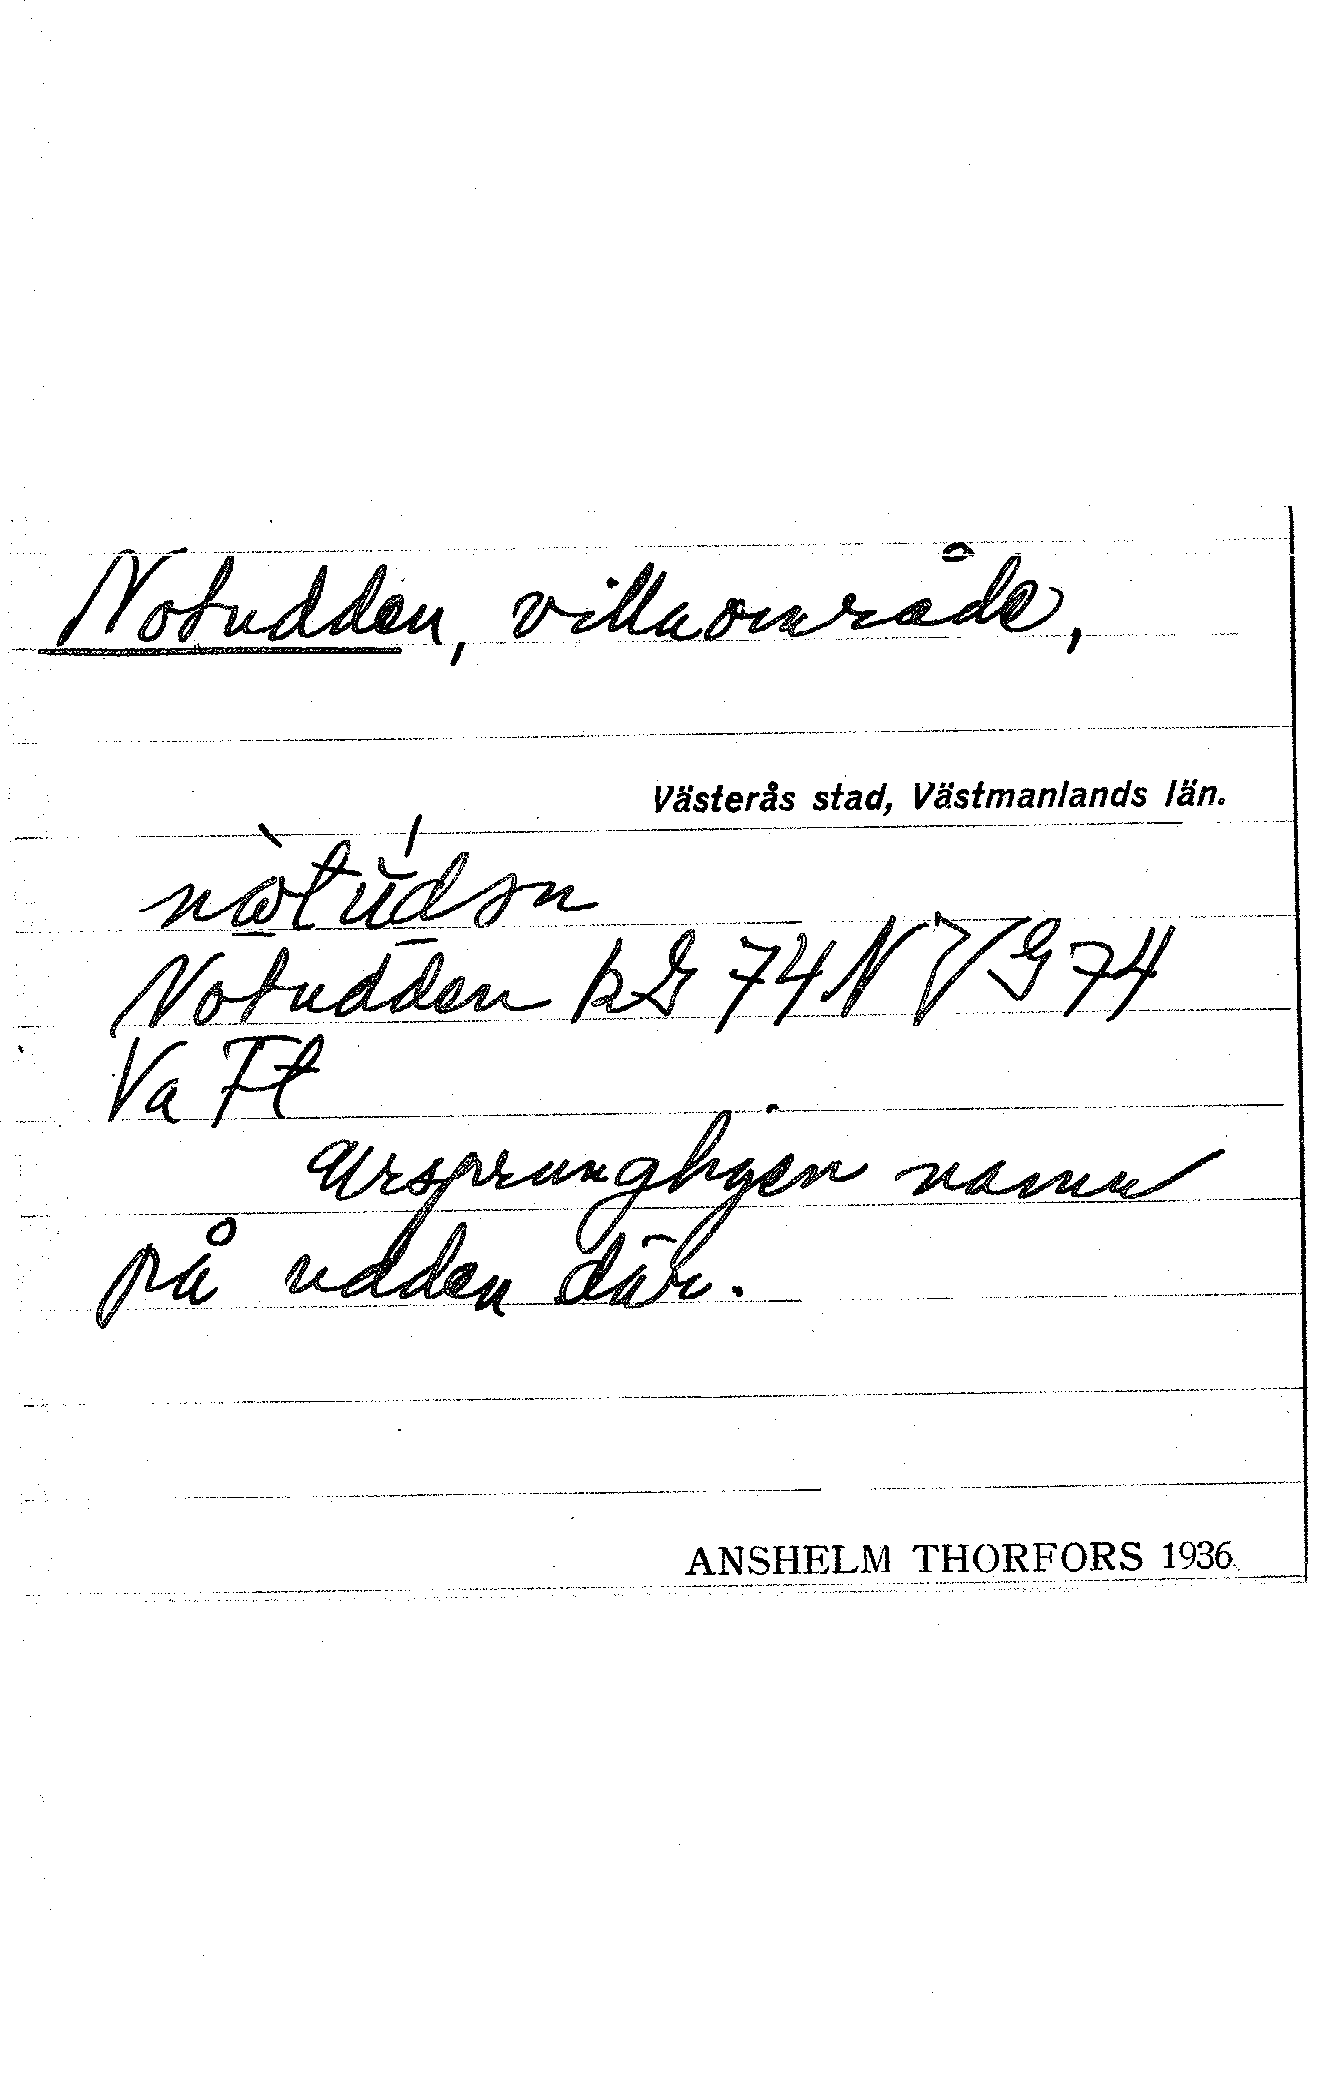 Notudden, villaområde,
Västerås stad, Västmanlands län.
Notudden kG 74 N V G 74
Va Ft
Ursprungligen namn
på udden där.
ANSHELM THORFORS 1936.